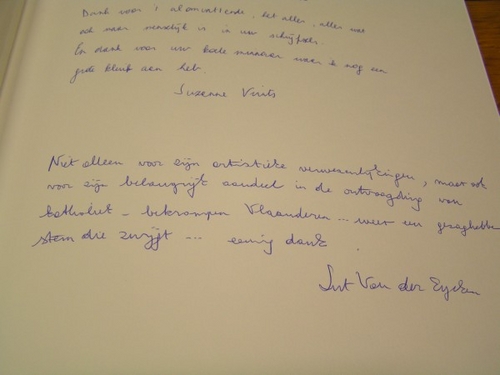 Dank voor 't alomvattende, het alles, alles wat
ook maar menselijk is in uw schrijfsels.
En dank voor uw boek waar ik nog een
grote klank aan heb.
Suzanne Virits
Niet alleen voor zijn artistieke verwezenlijkingen, maar ook
voor zijn belangrijk aandeel in de ontvoogding van
katholiek - bekrompen Vlaanderen ... weer een gezaghebbende
stem die zwijgt ... eeuwig dank
Lut Van der Eycken